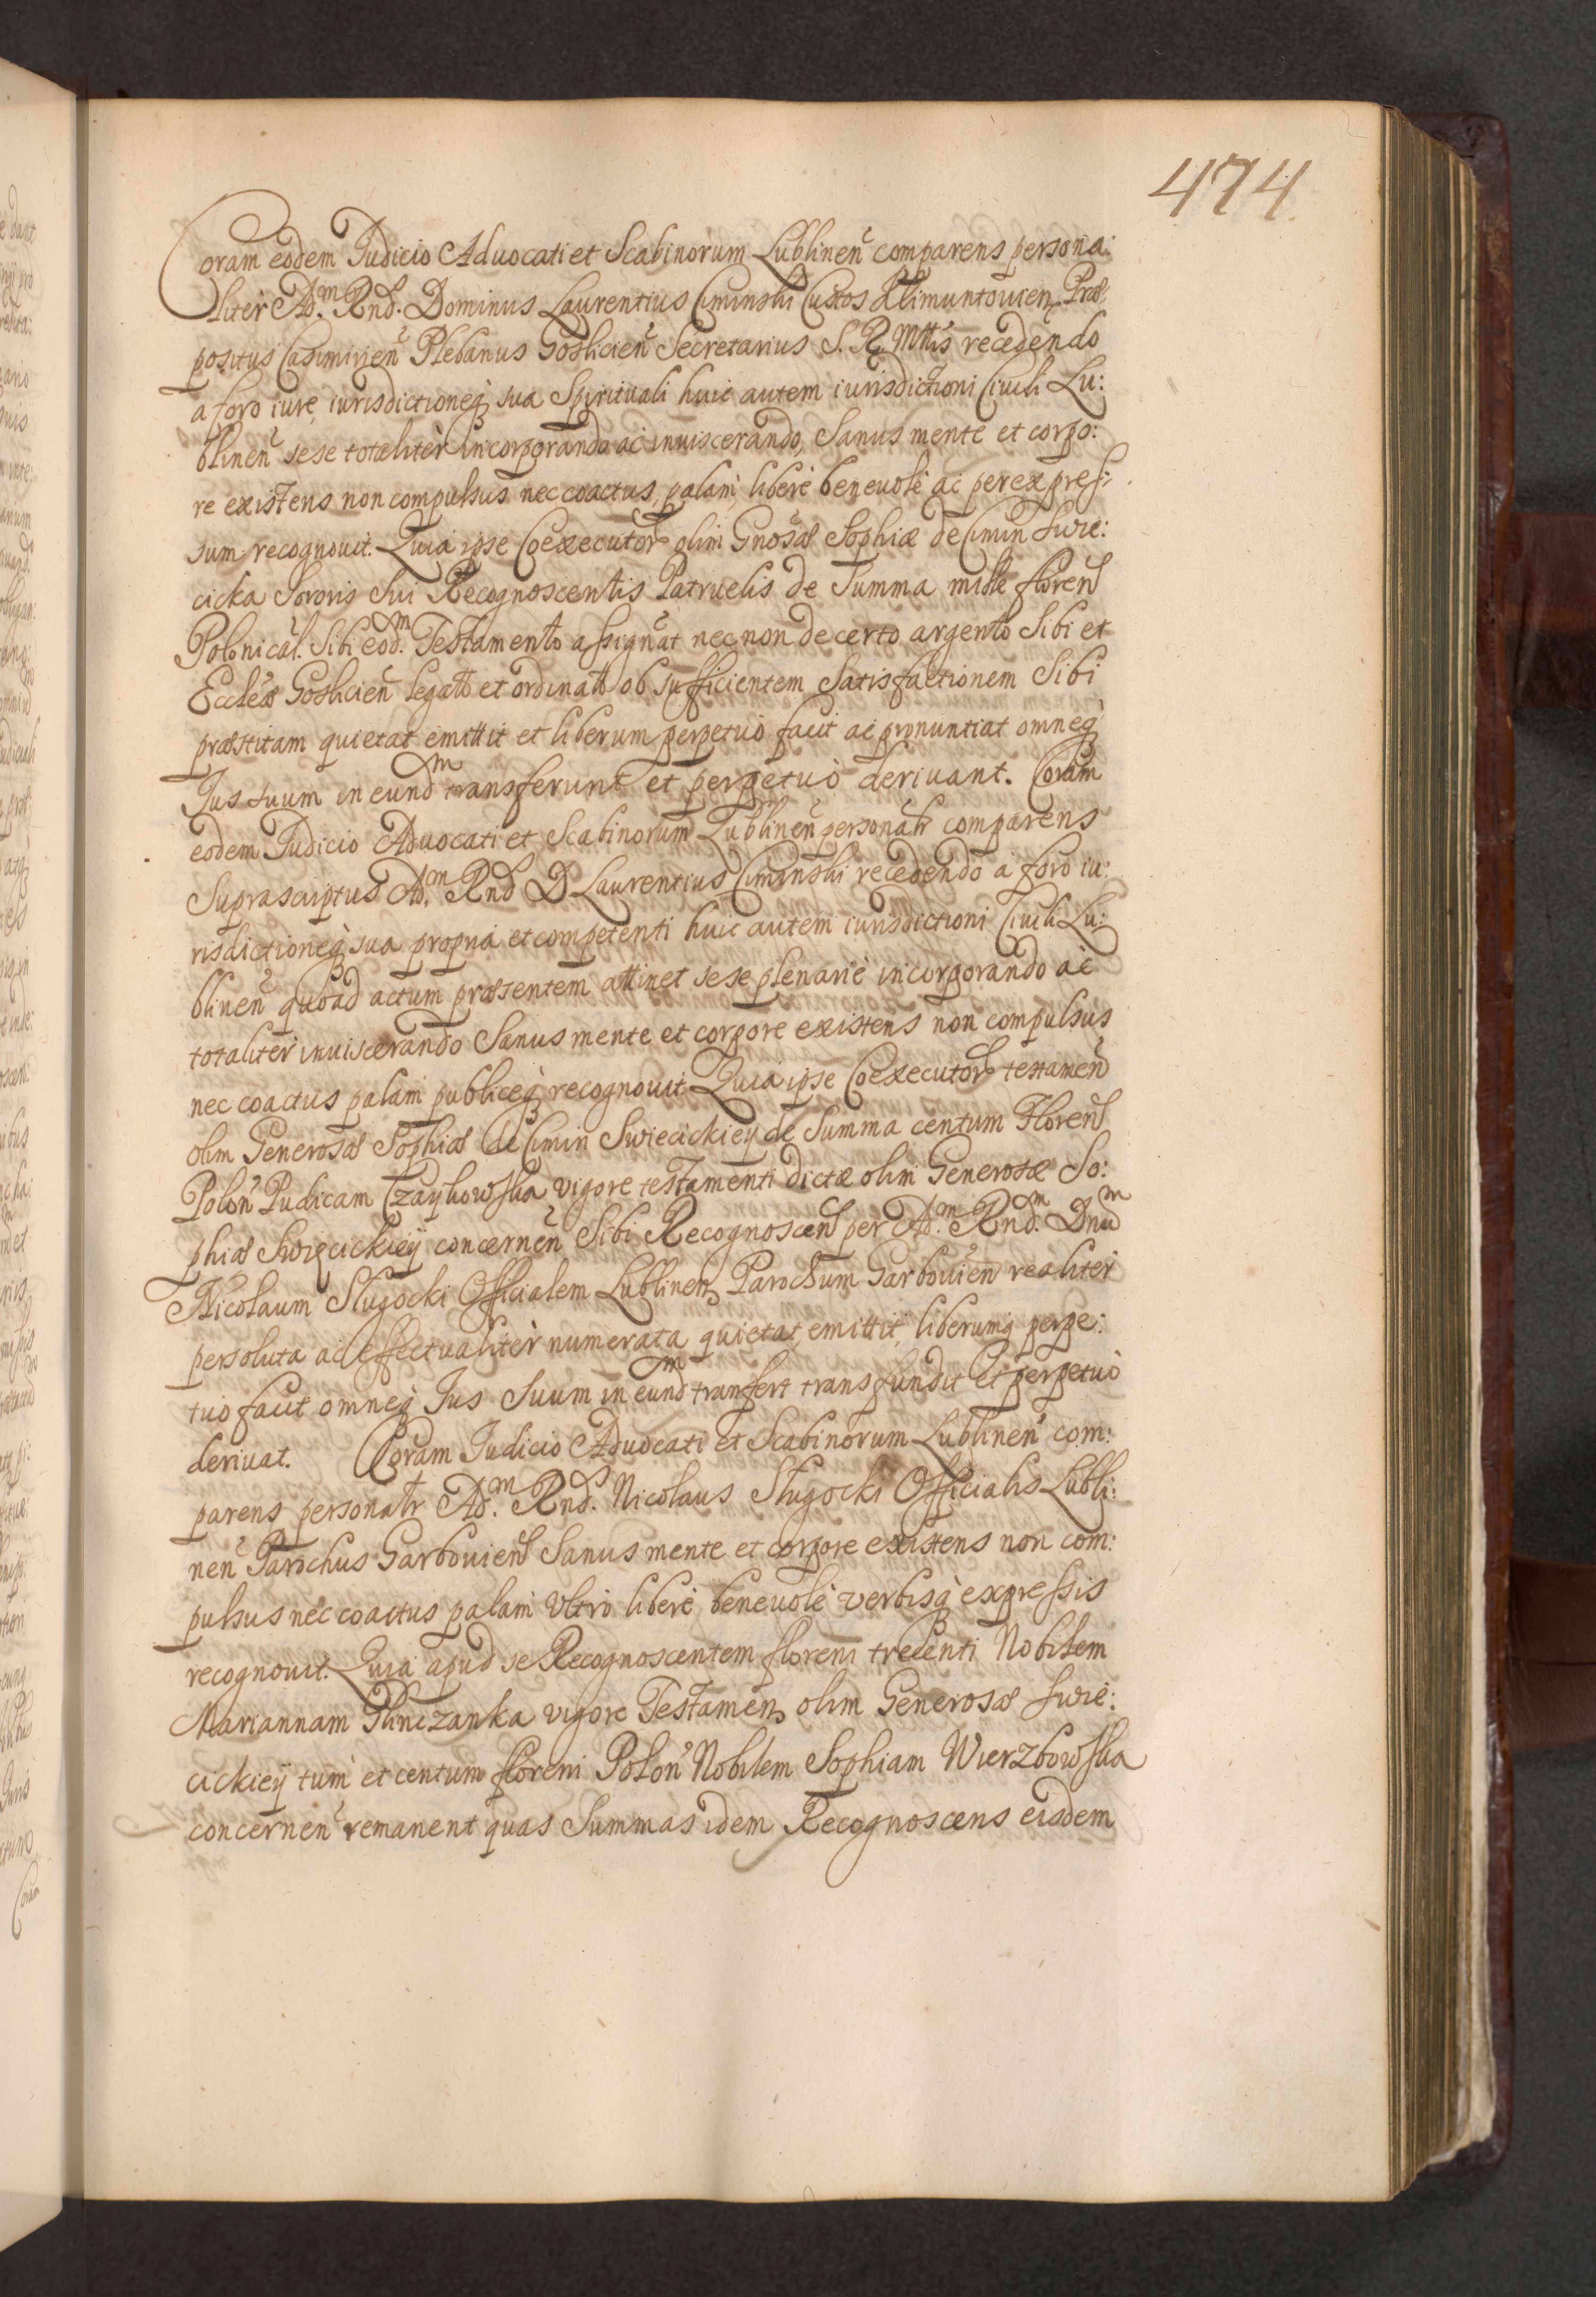 474
Coram eodem Judicio Advocati et Scabinorum Lublinen̄ comparens persona:
liter Ad.m Rnd. Dominus Laurentius Ciminski Custos Klimuntouien Præ
positus Casimirien̄ Plebanus Goslicien̄ Secretarius S. R. Mttis recedendo
a foro iure, iurisdictioneq sua Spirituali huic autem iurisdictioni Ciuili Lu:
blinen̄ sese totaliter incorporando ac inuiscerando, Sanus mente et corpo:
re existens non compulsus nec coactus, palam, libere beneuole ac per expres:
sum recognouit. Quia ipse Coexecutor olim Gnosæ Sophiæ de Cimin Swie:
cicka Sororis Sui Recognoscentis Patruelis de Summa mille floren
Polonical. Sibi eod.m Testamento assignat nec non de certo argento Sibi et
Eccleæ Goslicien̄ legato et ordinato ob sufficientem Satisfactionem Sibi
præstitam quietat emittit et liberum perpetuo facit ac pronuntiat omneq
Jus suum in eund.m transferunt et perpetuo deriuant. Coram
eodem Judicio Aduocati et Scabinorum Lublinen̄ personalr comparens
Suprascriptus Ad.m Rnd D Laurentius Ciminski recedendo a foro iu:
risdictioneq sua propria et competenti huic autem iurisdictioni Ciuili Lu:
blinen̄ quoad actum præsentem attinet sese plenarie incorporando ac
totaliter inuiscerando Sanus mente et corpore existens non compulsus
nec coactus palam publiceq recognouit Quia ipse Coexecutor testamen
olim Generosæ Sophiæ de Cimin Swiecickiey de Summa centum Floren
Polon̄ Pudicam Czaykowska vigore testamenti dictæ olim Generosæ So:
phiæ Swięcickiey concernen̄ Sibi Recognoscen per Ad.m Rnd.m Dnu.m
Nicolaum Sługocki Officialem Lublinen Parochum Garbouien̄ realiter
persoluta ac effectualiter numerata quietat, emittit, liberumq perpe:
tuo facit omneq Jus Suum in eund.m tranfert transfundit et perpetuo
deriuat. Coram Judicio Aduocati et Scabinorum Lublinen̄ com:
parens personalr Ad.m Rnd. Nicolaus Sługocki Officialis Lubli:
nen̄ Parochus Garbouien Sanus mente et corpore existens non com:
pulsus nec coactus palam Vltro libere beneuole verbisq expressis
recognouit. Quia apud se Recognoscentem floreni trecenti Nobilem
Mariannam Glinczanka vigore Testamen olim Generosæ Swie:
cickiey tum et centum floreni Polon̄ Nobilem Sophiam Wierzbowska
concernen̄ remanent quas Summas idem Recognoscens eisdem